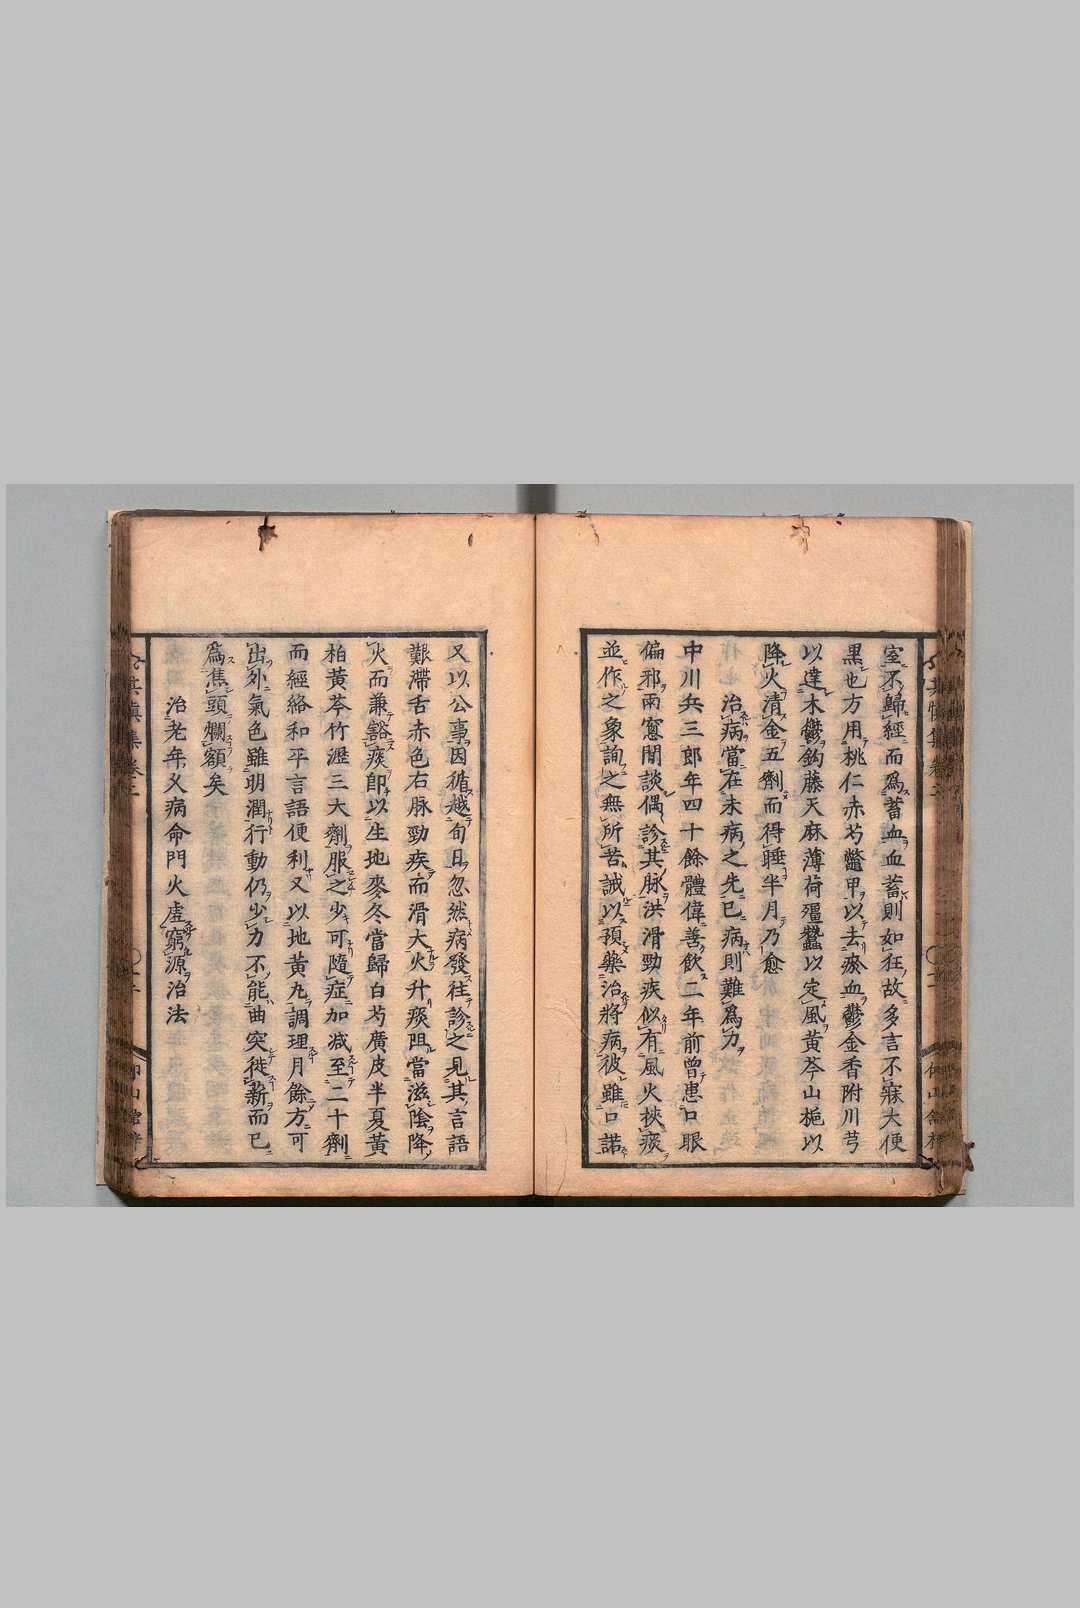 室不歸經而爲蓄血血蓄則如狂故多言不寐大便
黒也方用桃仁赤芍鼈甲以去瘀血鬱金香附川芎
以達木鬱鈎藤天麻薄荷殭蠶以定風黄芩山梔以
降火清金五劑而得睡半月乃愈
治病當在未病之先已病則難爲力
中川兵三郎年四十餘體偉善飲二年前曾患口眼
偏邪雨窓閒談偶診其脉洪滑勁疾似有風火挾痰
並作之象詢之無所苦誡以預藥治將病彼雖口諾
又以公事因循越旬日忽然病發往診之見其言語
艱滯舌赤色右脉勁疾而滑大火升痰阻當滋陰降
火而兼豁痰卽以生地麥冬當歸白芍廣皮半夏黄
柏黄芩竹瀝三大劑服之少可隨症加减至二十劑
而經絡和平言語便利又以地黄丸調理月餘方可
出外氣色雖明潤行動仍少力不能曲突徙薪而已
爲焦頭爛額矣
治老年父病命門火虛窮源治法